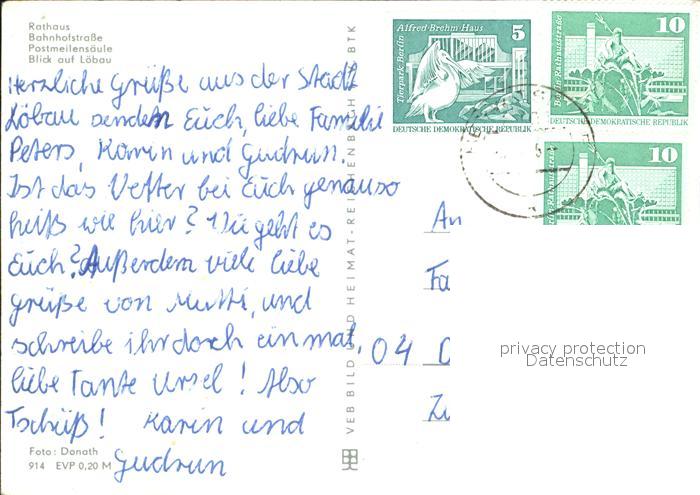 Rathaus
Bahnhofstraße
Postmeilensäule
Blick auf Löbau
Herzliche Grüße aus der Stadt
Löbau senden Euch, liebe Familie
Peters, Karin und Gudrun.
Ist das Wetter bei Euch genauso
heiß wie hier? Wie geht es
Euch? Außerdem viele liebe
grüße von Mutti, und
schreibe ihr doch ein mal,
liebe Tante Ursel! Also
Tschüß! Karin und
Gudrun
Foto: Donath
914 EVP 0,20 M
VEB BILD UND HEIMAT · REICHENBACH BTK
Alfred-Brehm-Haus
5
Tierpark Berlin
DEUTSCHE DEMOKRATISCHE REPUBLIK
10
Berlin · Rathausstraße
DEUTSCHE DEMOKRATISCHE REPUBLIK
10
Rathausstraße
An
Fa
04
privacy protection
Datenschutz